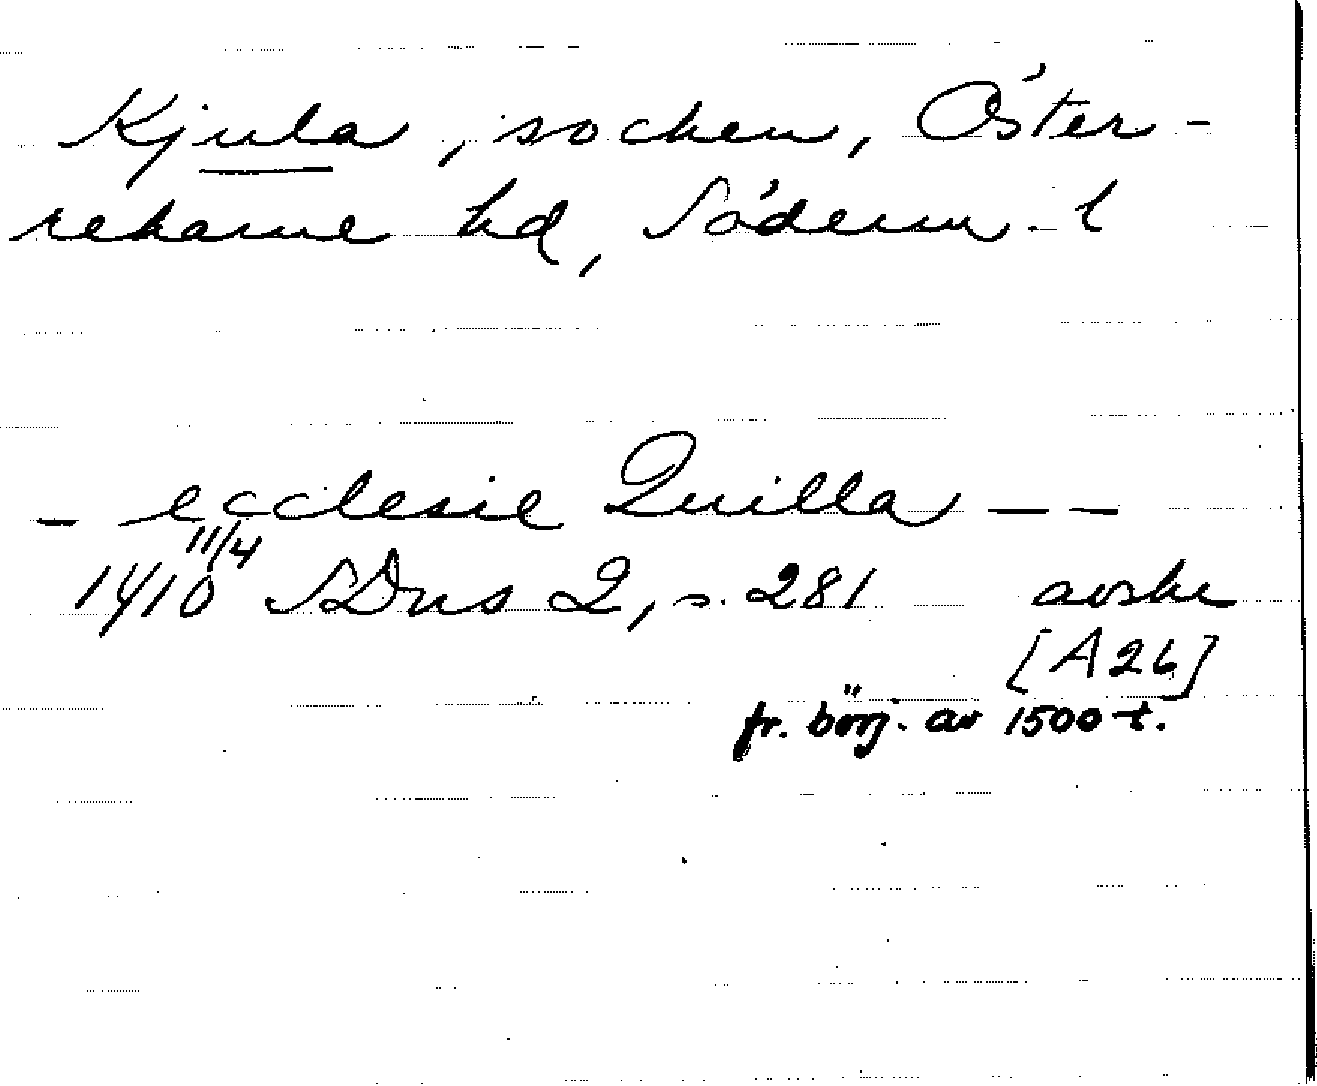 Kjula, socken, Öster-
rekarne hd, Söderm. l
- ecclesie Quilla - -
11/4
1410 SDns 2, s. 281 avskr
[A26]
fr. börj. av 1500-t.